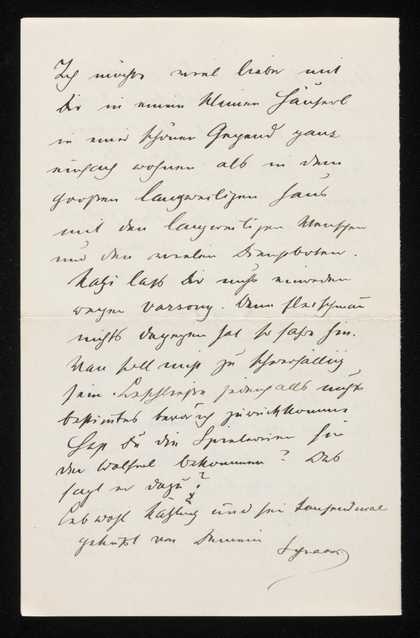 Ich möchte viel lieber mit
Dir in einem kleinen Häuserl
in einer schönen Gegend ganz
einfach wohnen als in dem
großen langweiligen Haus
mit den langweiligen Menschen
und den vielen Dienstboten.
Kathi laß Dir nicht einreden
wegen Wenn
nichts dagegen hat so fahre hin.
Man soll nicht zu schwerfällig
sein. jedenfalls nicht
bestimmtes bevor ich zurückkomme
Hast Du die für
den bekommen? Was
sagt er dazu?
Leb wohl und sei tausendmal
geküßt von Deinem